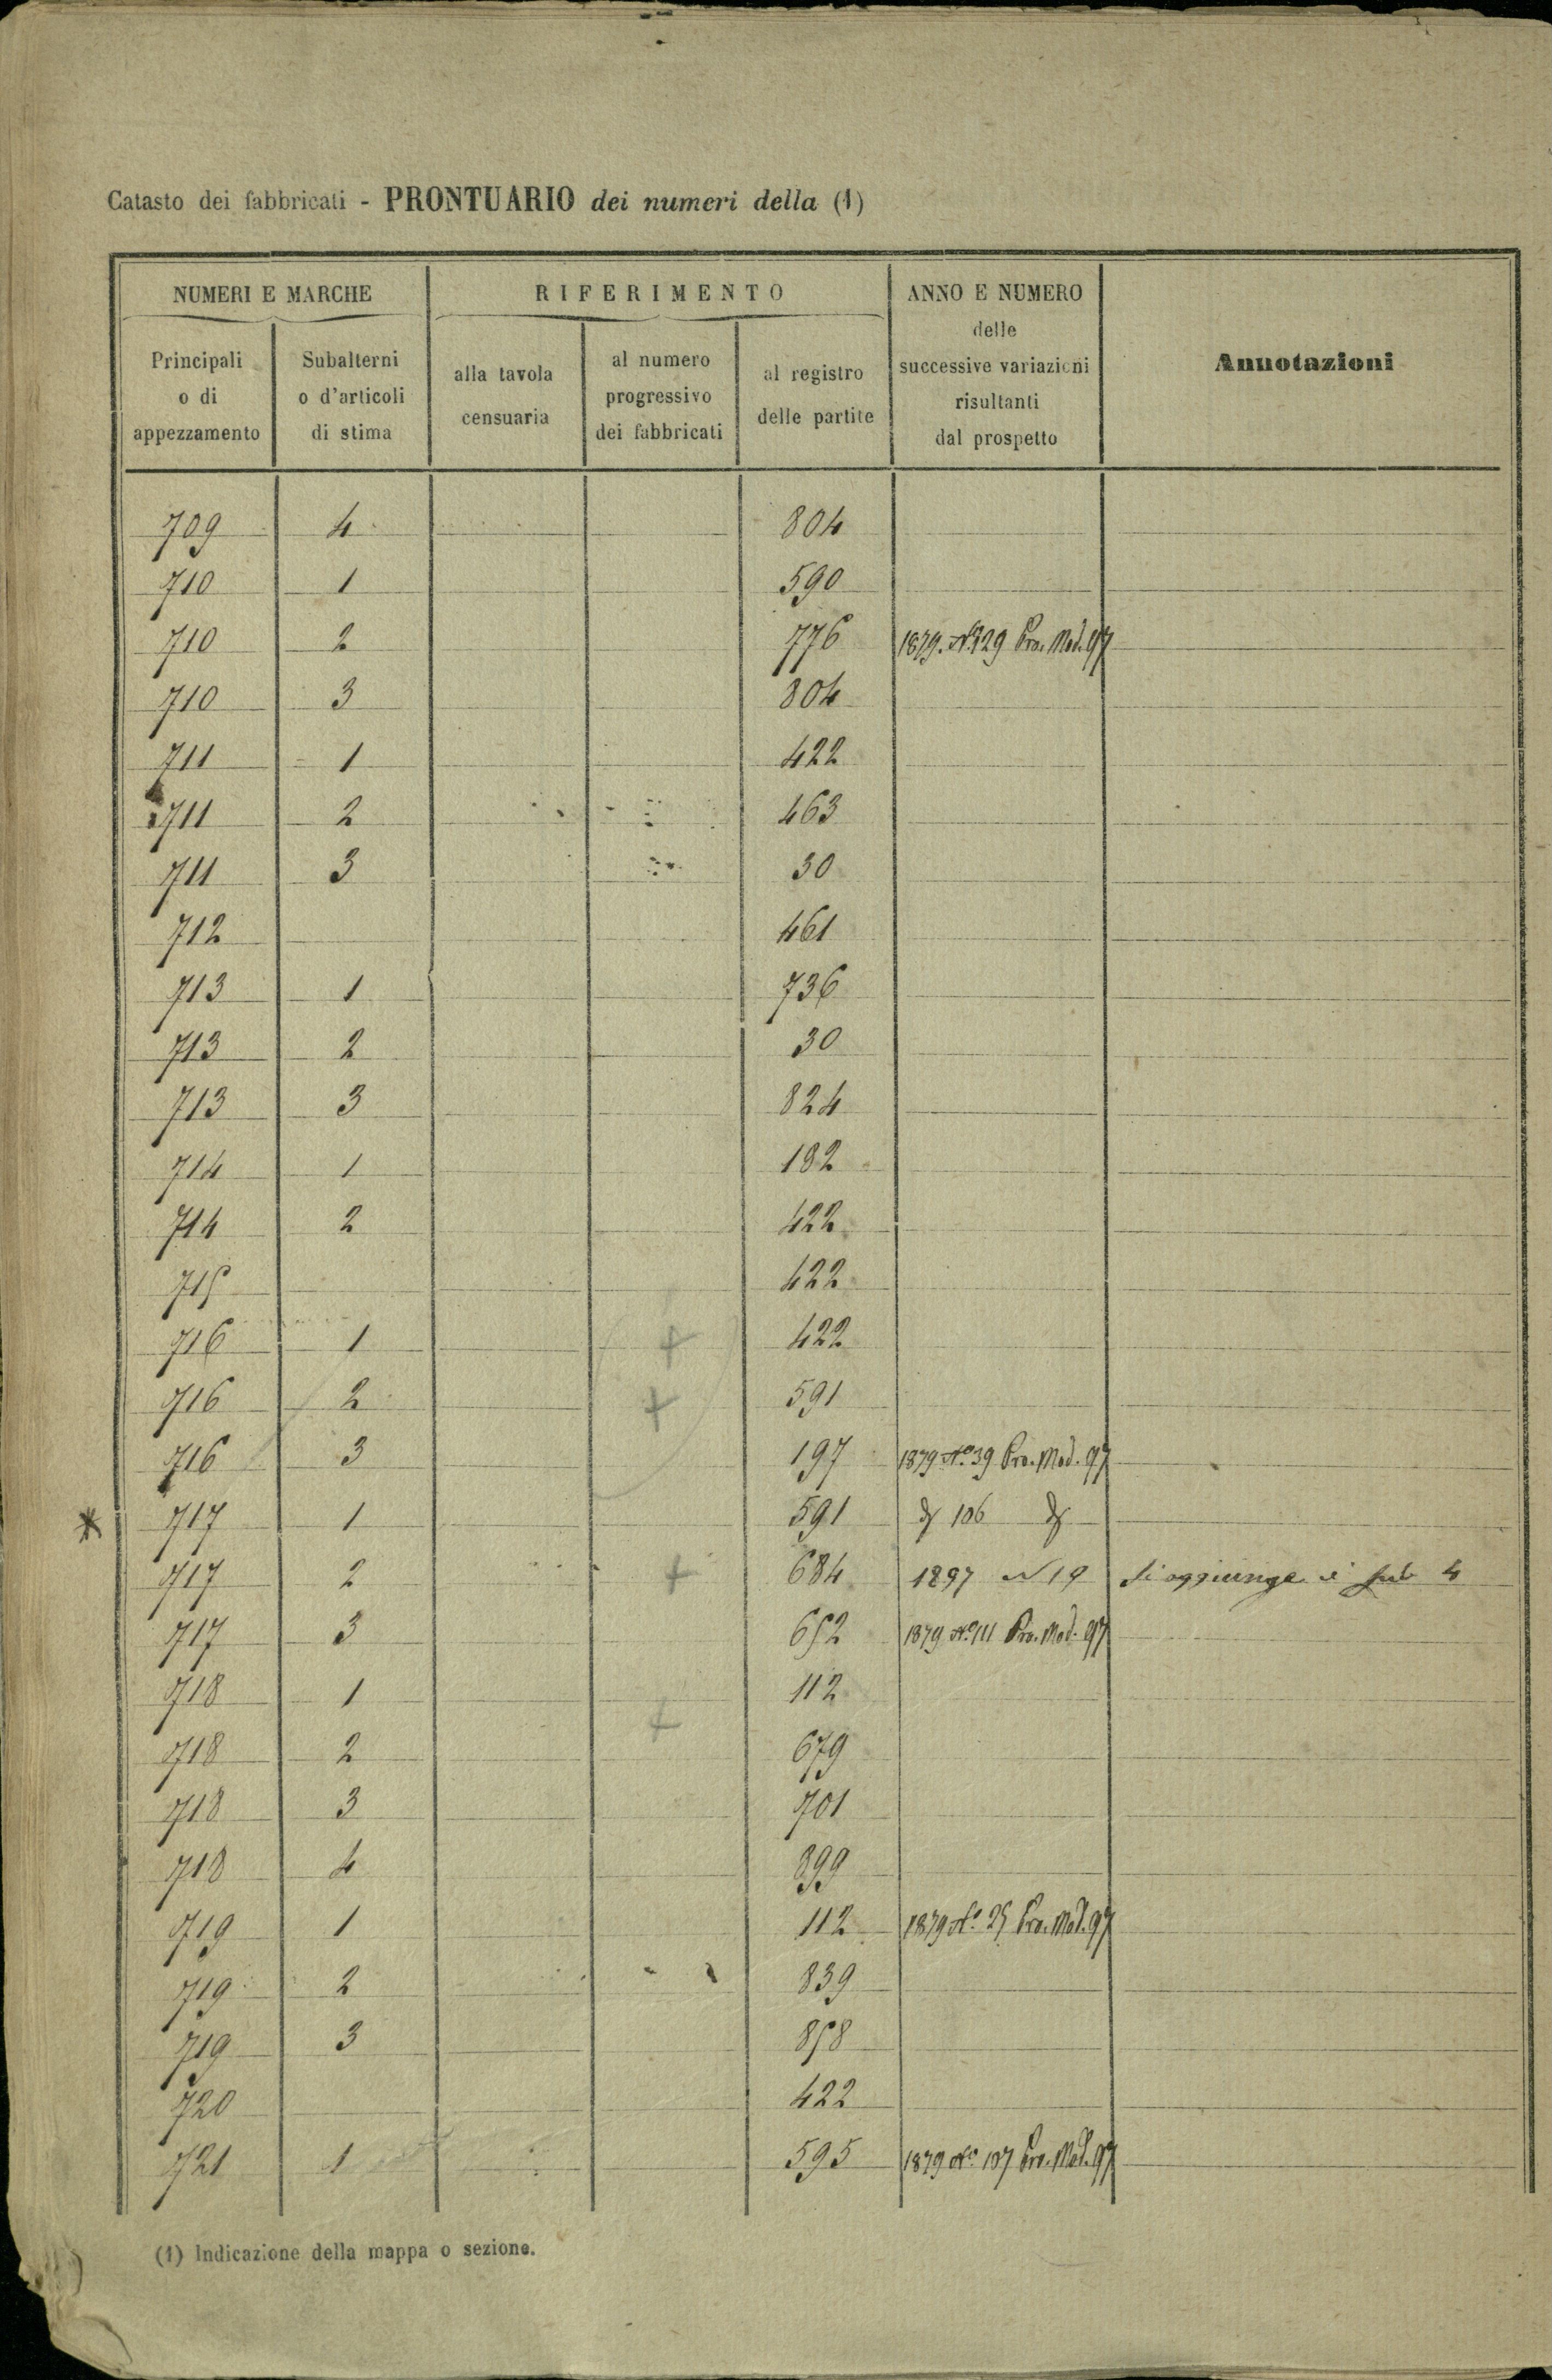 Catasto dei fabbricati - PRONTUARIO dei numeri della (1)
NUMERI E MARCHE
RIFERIMENTO
ANNO E NUMERO
delle
successive variazioni
risultanti
dal prospetto
Annotazioni
Principali
o di
appezzamento
Subalterni
o d'articoli
di stima
alla tavola
censuaria
al numero
progressivo
dei fabbricati
al registro
delle partite
709 4 804
710 1 590
710 2 776 1879. No 129 Pro. Mod. 97
710 3 804
711 1 422
711 2 463
711 3 30
712 461
713 1 736
713 2 30
713 3 824
714 1 182
714 2 422
715 422
716 1 + 422
716 2 + 591
716 3 197 1879 No 39 Pro. Mod. 97
* 717 1 591 106
717 2 + 684 1897 N 19 Si aggiunge il sub 4
717 3 652 1879 No 111 Pro. Mod. 97
718 1 112
+
718 2 679
718 3 701
718 4 899
719 1 112 1879 No 25 Pro. Mod. 97
719 2 839
719 3 858
720 422
721 1 595 1879 No 107 Pro. Mod. 97
(1) Indicazione della mappa o sezione.